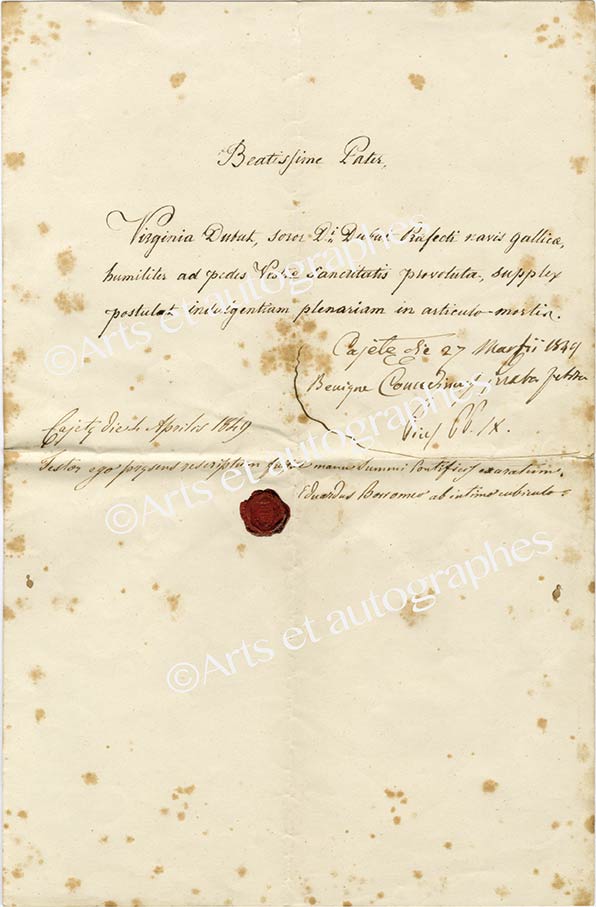 Beatissime Pater,
Virginia Dubut, soror Dⁱ Dubut Præfecti navis gallicæ,
humiliter ad pedes Vestræ Sanctitatis provoluta, supplex
postulat indulgentiam plenariam in articulo mortis.
Cajetę die 27 Martii 1849
Benigne Concedimus
Pius PP. IX.
Cajetę die 4 Aprilis 1849
Testor ego pręsens rescriptum fuisse manu Summi Pontificis exaratum.
Eduardus Borromeo ab intimo cubiculo
©Arts et autographes
©Arts et autographes
©Arts et autographes